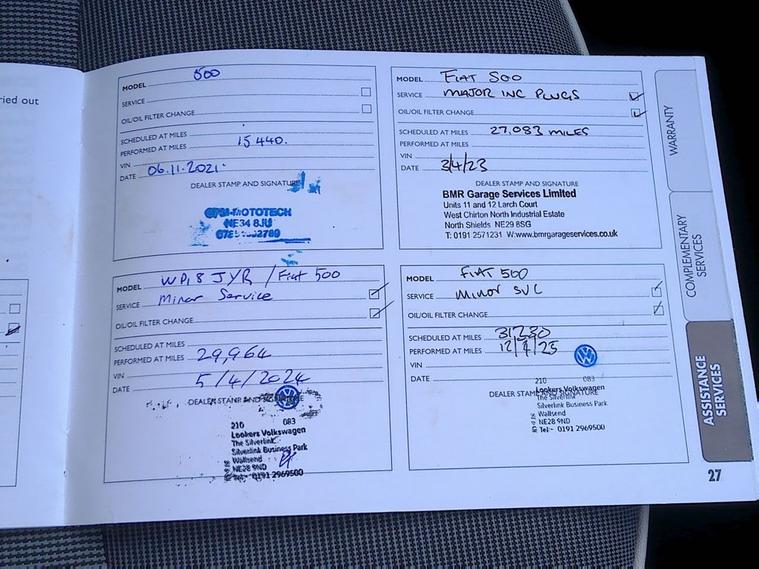 ried out
MODEL 500
SERVICE
OIL/OIL FILTER CHANGE
SCHEDULED AT MILES
PERFORMED AT MILES 15440.
VIN
DATE 06.11.2021.
DEALER STAMP AND SIGNATURE
MOTOTECH
NE34 8JU
MODEL FIAT 500
SERVICE MAJOR INC PLUGS
OIL/OIL FILTER CHANGE
SCHEDULED AT MILES 27,083 MILES
PERFORMED AT MILES
VIN
DATE 3/4/23
DEALER STAMP AND SIGNATURE
BMR Garage Services Limited
Units 11 and 12 Larch Court
West Chirton North Industrial Estate
North Shields NE29 8SG
T: 0191 2571231 W:www.bmrgarageservices.co.uk
MODEL WP18 JYR / Fiat 500
SERVICE Minor Service
OIL/OIL FILTER CHANGE
SCHEDULED AT MILES
PERFORMED AT MILES 29,964
VIN
DATE 5/4/2024
DEALER STAMP AND SIGNATURE
210 083
Lookers Volkswagen
The Silverlink
Silverlink Business Park
Wallsend
NE28 9ND
Tel:- 0191 2969500
MODEL FIAT 500
SERVICE Minor SVC
OIL/OIL FILTER CHANGE
SCHEDULED AT MILES
PERFORMED AT MILES
VIN
DATE
DEALER STAMP AND SIGNATURE
210 083
Lookers Volkswagen
The Silverlink
Silverlink Business Park
Wallsend
NE28 9ND
Tel:- 0191 2969500
WARRANTY
COMPLEMENTARY
SERVICES
ASSISTANCE
SERVICES
27